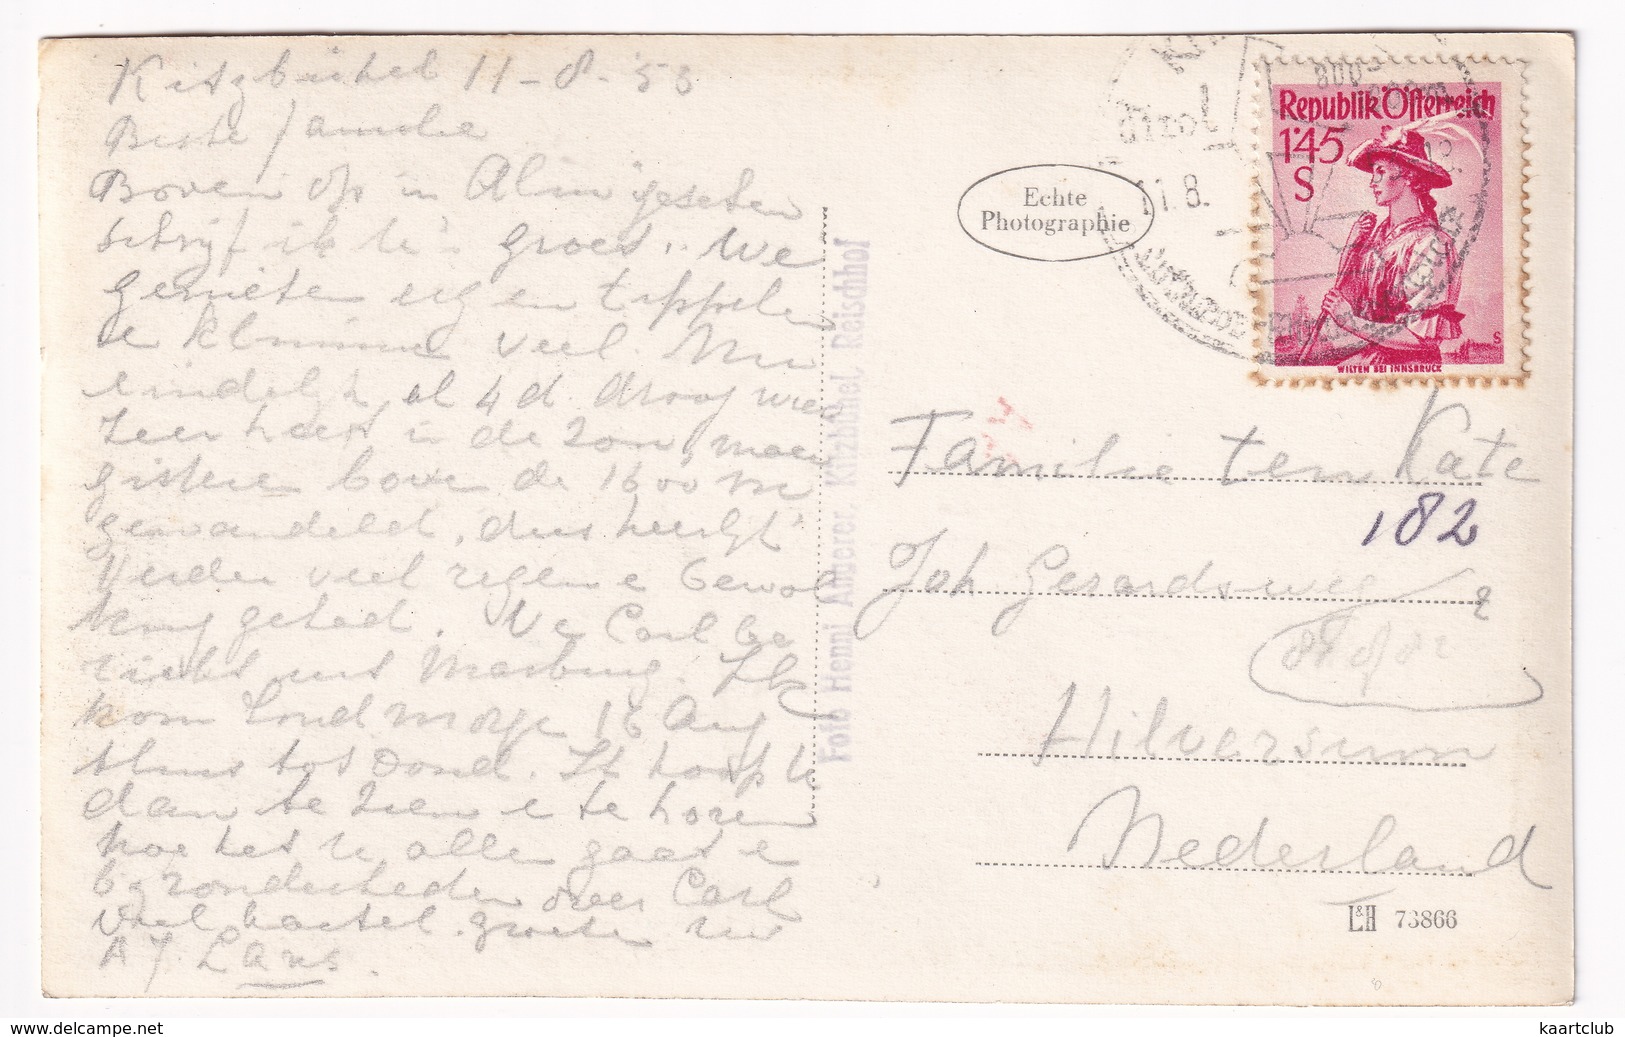 Kitzbühel 11-8-53
Beste familie
Boven op in Alm gezeten
schrijf ik te groet. We
genieten erg en tippelen
e klimmen veel. Nu
eindelijk al 4 d. droog weer
Zeer heet in de zon, maar
gisteren boven de 1600 m
gewandeld, dus heerlijk
Verder veel regen e bewol
king gehad. Carl be
richt uit Marburg. Ik
kom Zond morge 16 Aug
thuis tot Dond. Ik hoop U
dan te zien e te horen
hoe het U allen gaat e
bijzonderheden over Carl
Veel hartel. groeten uw
A J Lans.
Foto Henni Angerer, Kitzbühel, Reischhof
Echte
Photographie
Tirol
11.8.
Republik Österreich
1'45
S
WILTEN BEI INNSBRUCK
Familie ten Kate
182
Joh Gerardsweg
Hilversum
Nederland
L&H 73866
kaartclub
je kunt hem op delcampe.net